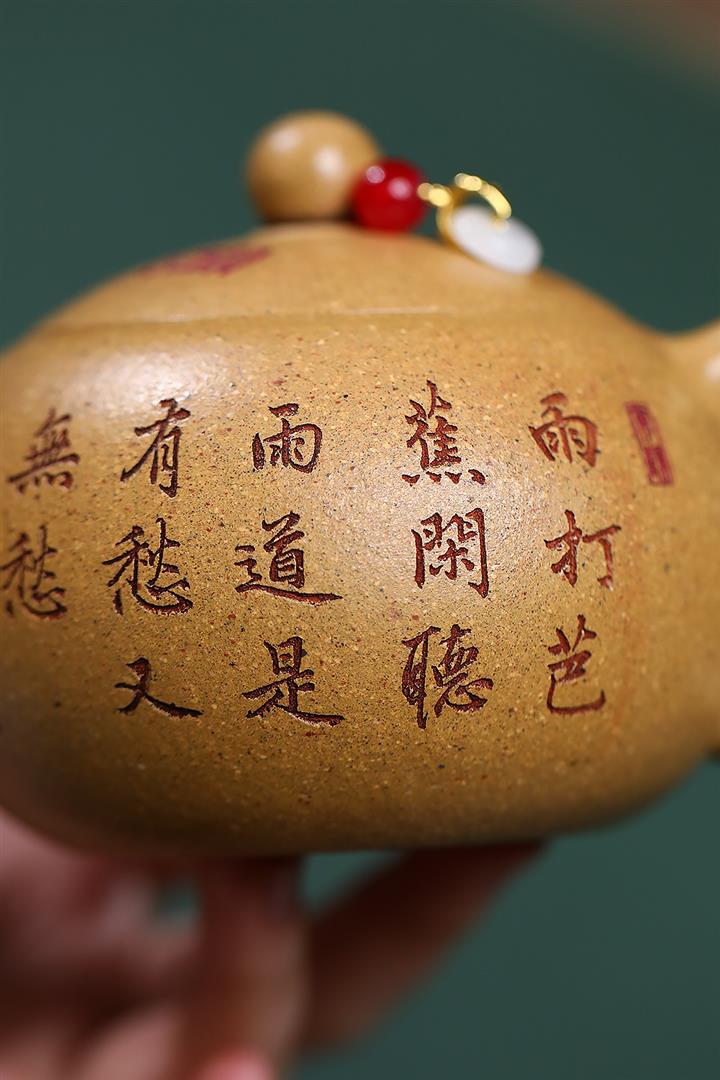 雨打芭
蕉閑聽
雨道是
有愁又
無愁